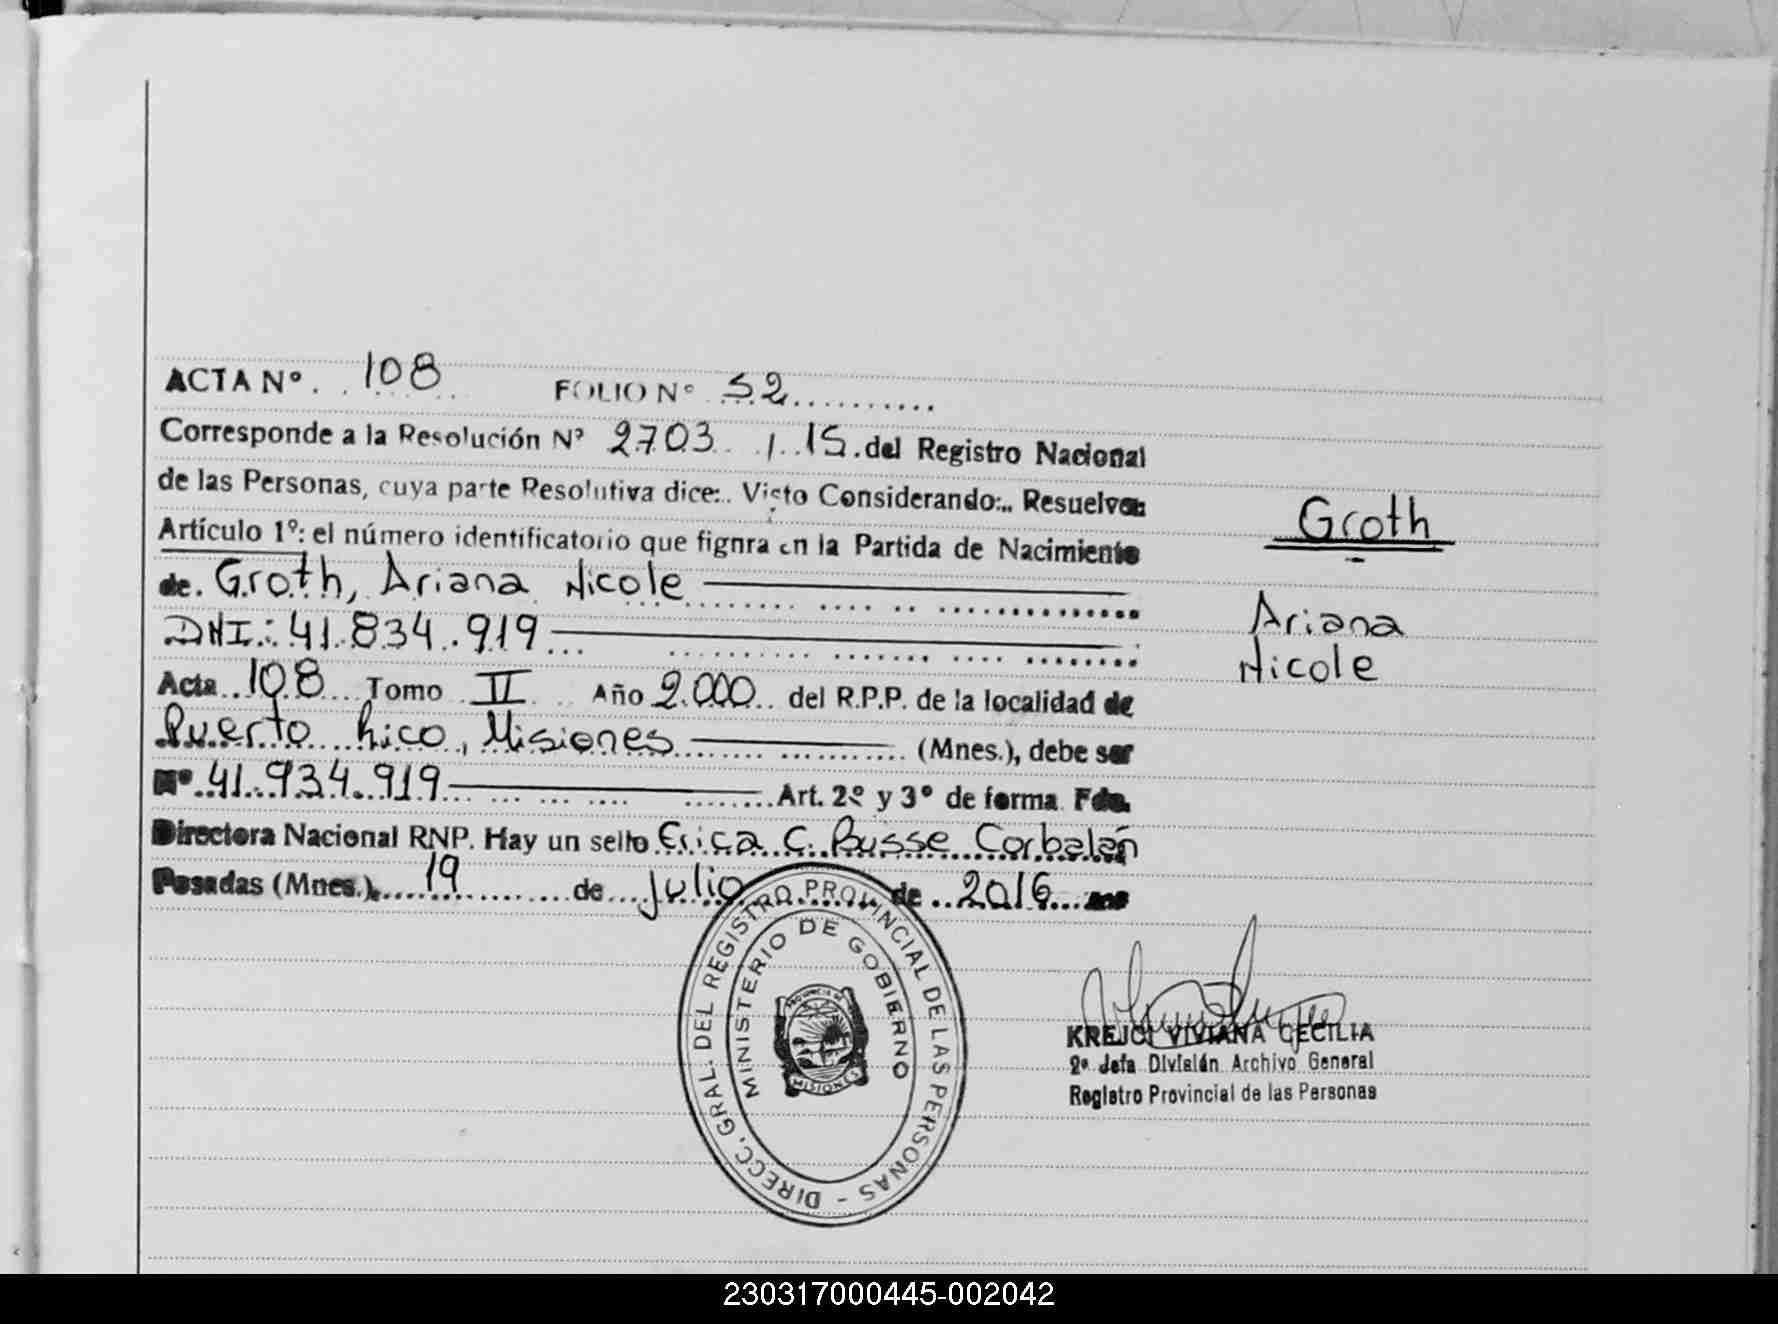 ACTA Nº. 108 FOLIO Nº 52
Corresponde a la Resolución Nº 2703 / 15 .del Registro Nacional
de las Personas, cuya parte Resolutiva dice:.. Visto Considerando:.. Resuelve:
Artículo 1º: el número identificatorio que fignra en la Partida de Nacimiento
de. Groth, Ariana Nicole
DNI.: 41.834.919
Acta 108 Tomo II Año 2.000 del R.P.P. de la localidad de
Puerto Rico, Misiones (Mnes.), debe ser
Nº 41.934.919 Art. 2º y 3º de forma Fdo.
Directora Nacional RNP. Hay un sello Erica C. Busse Corbalán
Posadas (Mnes.), 19 de Julio de 2016
Groth
Ariana
Nicole
DIRECC. GRAL. DEL REGISTRO PROVINCIAL DE LAS PERSONAS -
MINISTERIO DE GOBIERNO
PROVINCIA DE
MISIONES
KREJCI VIVIANA CECILIA
2º Jefa División Archivo General
Registro Provincial de las Personas
230317000445-002042